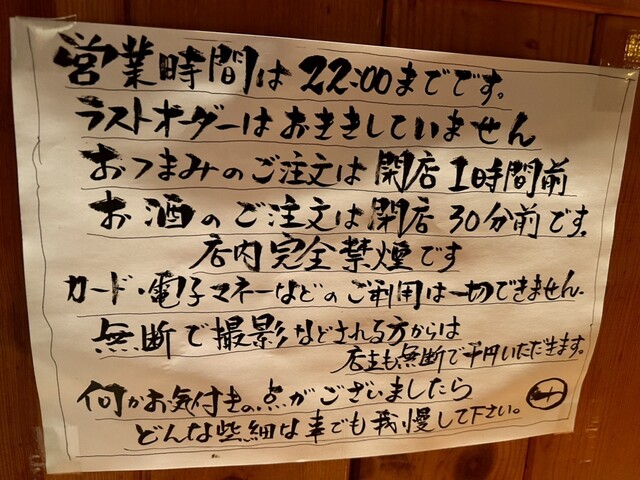 営業時間は22:00までです。
ラストオーダーはおききしていません
おつまみのご注文は閉店1時間前
お酒のご注文は閉店30分前です。
店内完全禁煙です
カード・電子マネーなどのご利用は一切できません.
無断で撮影などされる方からは
店主も無断で千円いただだきます。
何かお気付きの点がございましたら
どんな些細な事でも我慢して下さい。